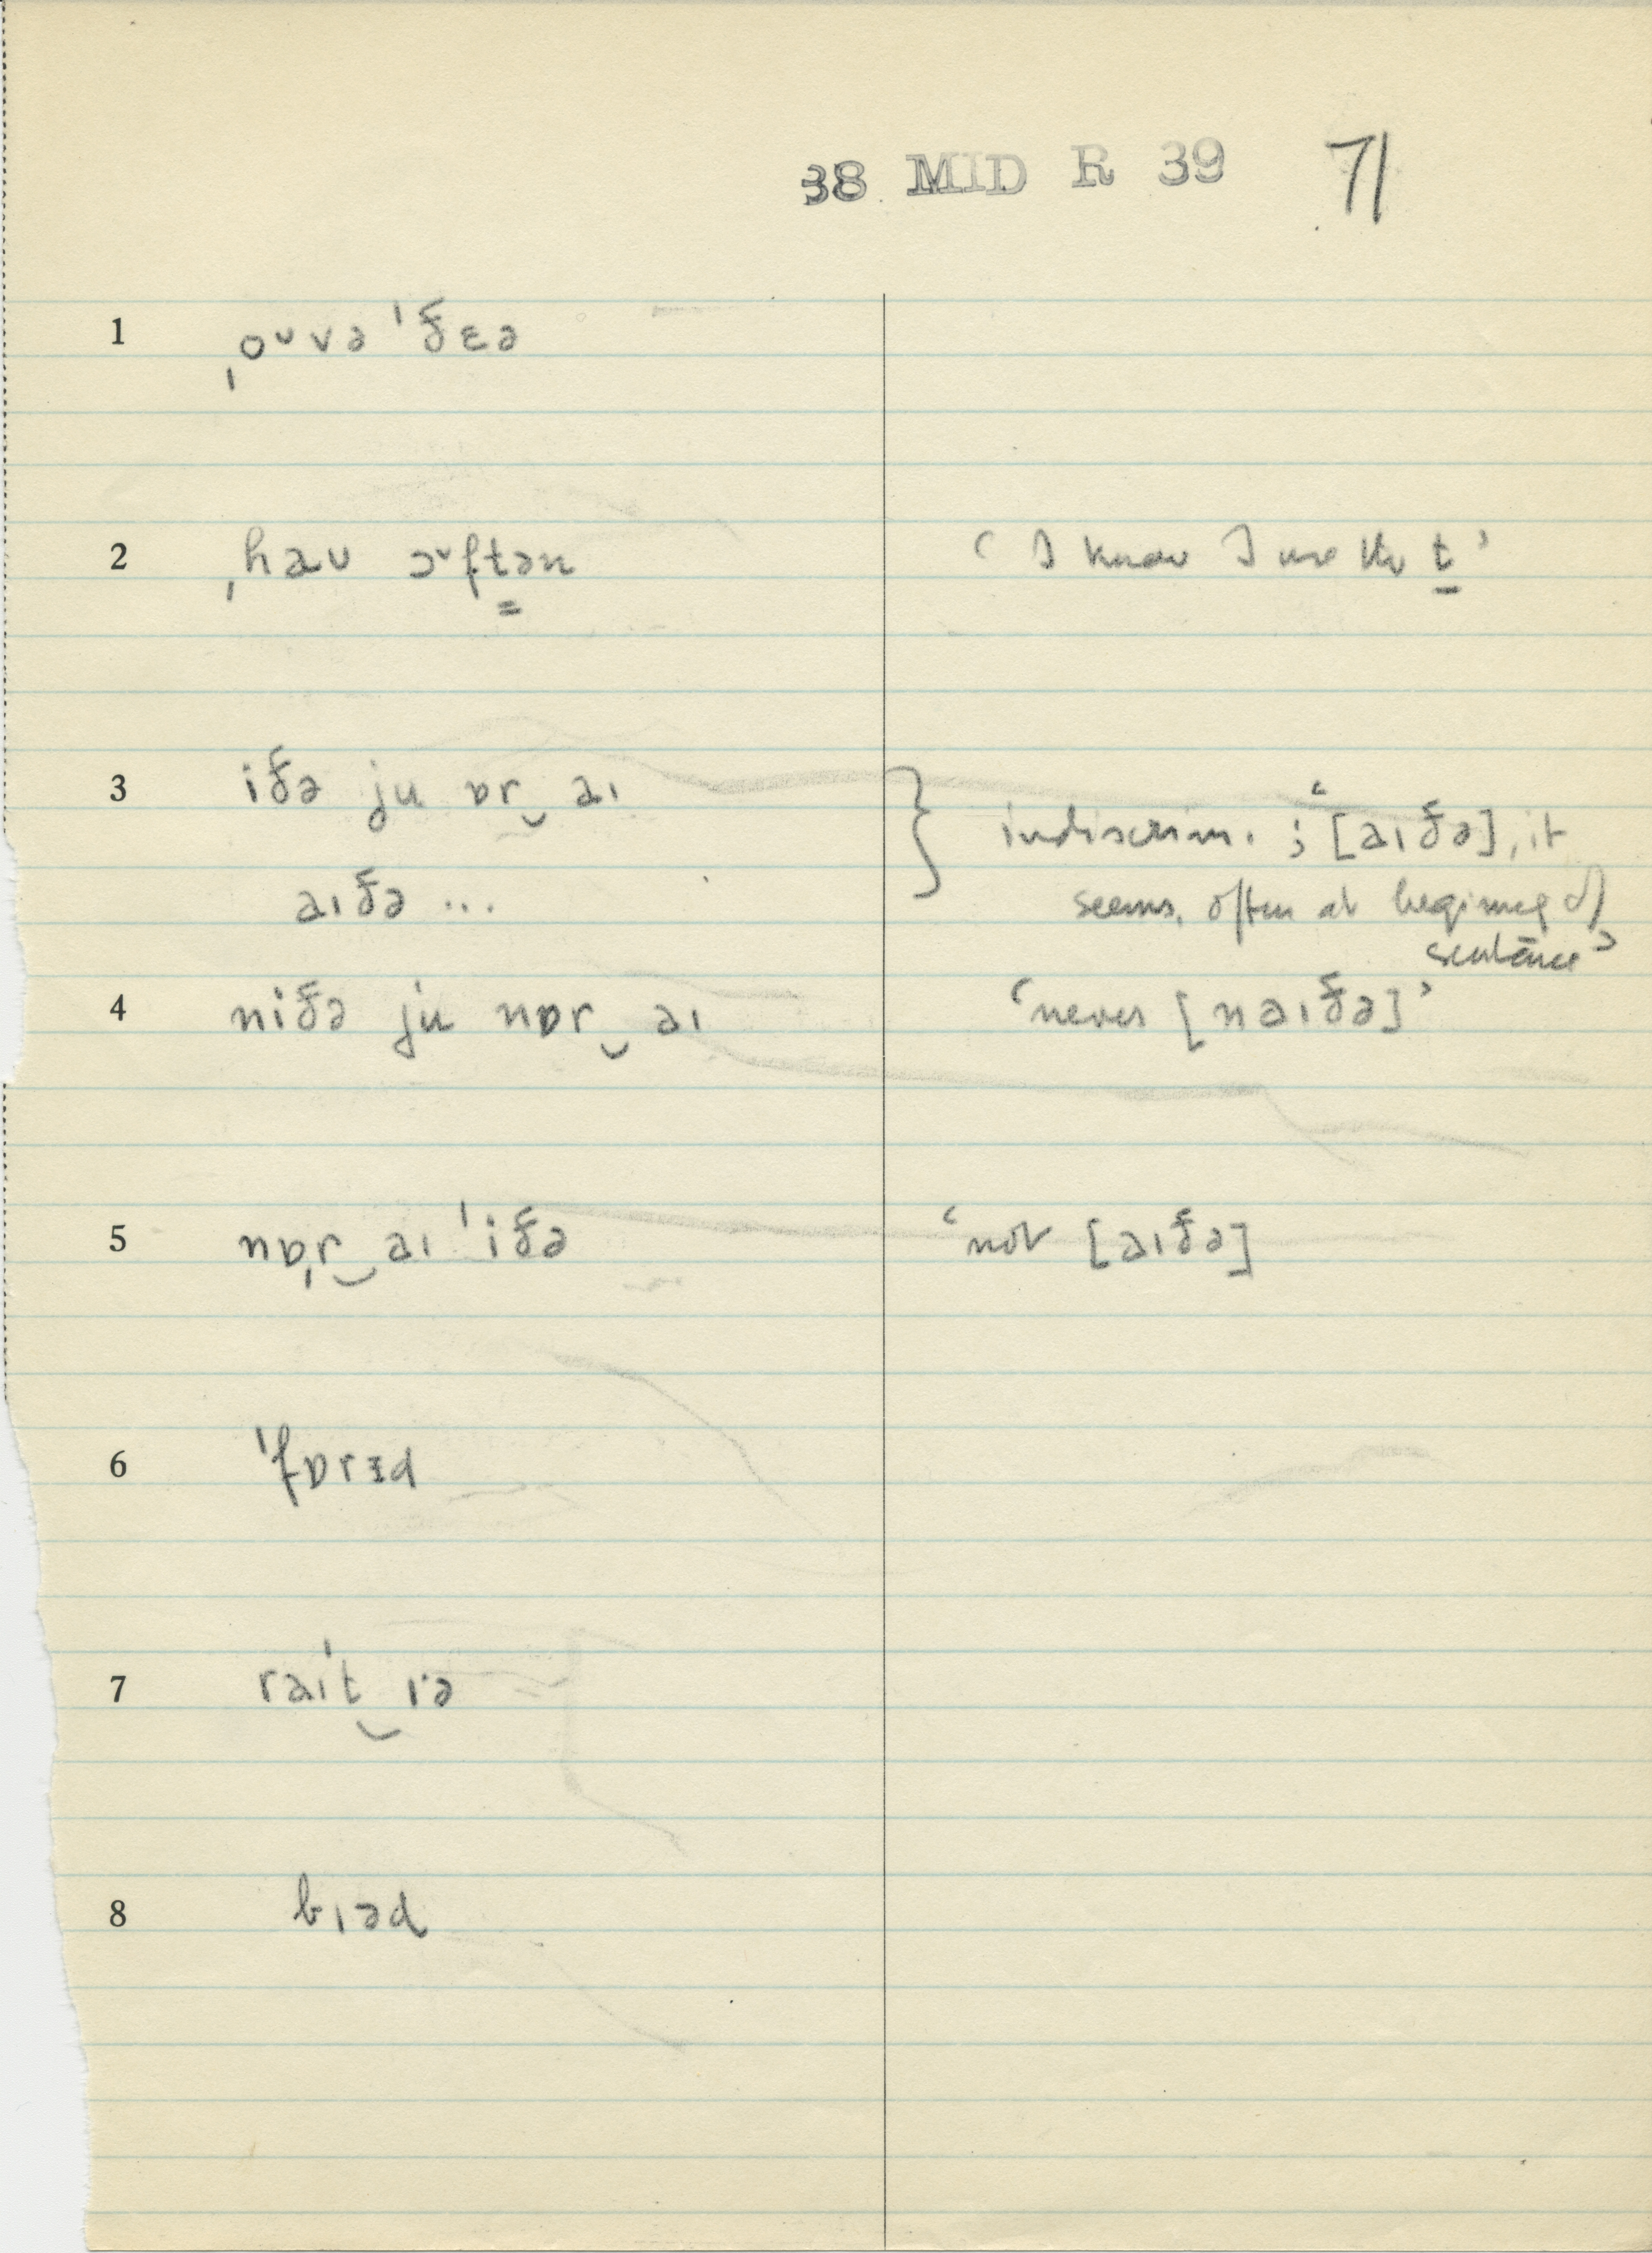 38 MID R 39 71
1 ˌoᵛvə ˈðɛə
2 ˌhaᴜ ɔᵛft̳ən ‘I know I use the t̲’
3 iðə ju ɒr‿aɪ } indiscrim. ; ‘[aɪðə], it
aɪðə ... seems, often at beginning of
sentence’
4 niðə ju nɒr‿aɪ ‘never [naɪðə]’
5 nˌɒr‿aɪ ˈiðə ‘not [aɪðə]
6 ˈfɒrɪd
7 raɪt‿ɪ·ə
8 bɪəd